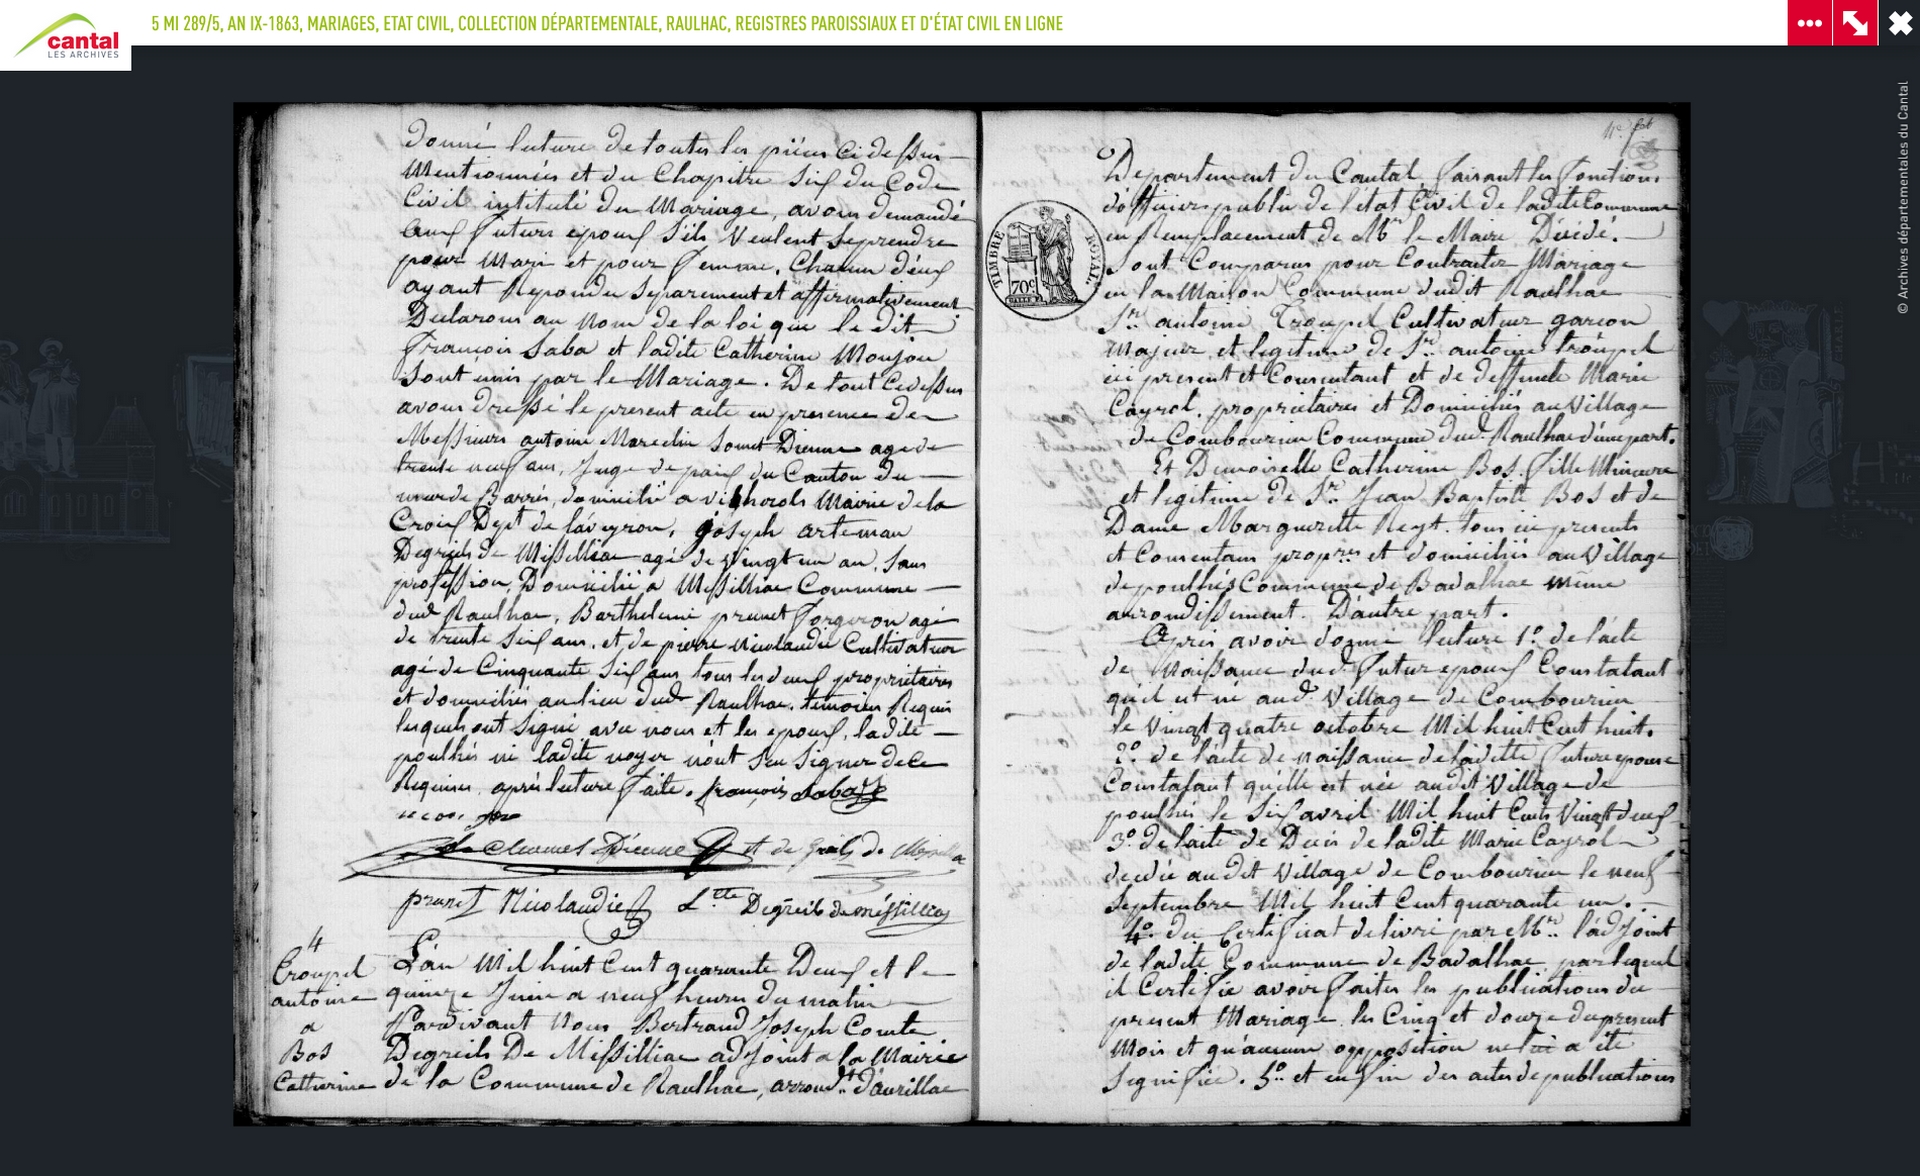 5 MI 289/5, AN IX-1863, MARIAGES, ETAT CIVIL, COLLECTION DÉPARTEMENTALE, RAULHAC, REGISTRES PAROISSIAUX ET D'ÉTAT CIVIL EN LIGNE
cantal
LES ARCHIVES
© Archives départementales du Cantal
donné lecture de toutes les pièces ci dessus
Mentionnées et du Chapitre Six du Code
Civil intitulé du Mariage, avons demandé
aux futurs epoux S'ils Veulent Se prendre
pour Mari et pour femme, Chacun d'eux
ayant Repondu Separement et affirmativement
Declarons au Nom de la loi que le dit
françois Saba et ladite Catherine Moujou
Sont unis par le Mariage. De tout Ce dessus
avons dressé le present acte en presence de
Messieurs antoine Marcelin Dienne agé de
trente neuf ans, Juge de paix du Canton de
mur de Barrés, domicilié a Mairie de la
Croix Dept de l'aveyron, joseph
Degreils de Missilliac agé de Vingt un an, Sans
profession, Domicilié a Missilhac Commune
dud Raulhac, Barthelemi prunet forgeron agé
de trente Six ans, et de pierre Nicolaudie Cultivateur
agé de Cinquante Six ans tous les deux propriétaires
et domiciliés au lieu dud Raulhac, témoins Requis
lesquels ont Signé avec nous et les epoux, ladite
poulhés ni ladite noyer n'ont Seu Signer de Ce
Requises, aprés lecture faite. françois Sabo
Dienne et de greils de Missillia
prunet Nicolaudie Degreils de Missilliac
4
Troupel
antoine
a
Bos
Catherine
L'an Mil huit Cent quarante Deux et le
quinze Juin a neuf heures du matin
Pardevant Nous Bertrand Joseph Comte
Degreils De Missilliac adjoint a la Mairie
de la Commune de Raulhac, arrond.t d'aurillac
TIMBRE ROYAL
70c
Departement du Cantal faisant les fonctions
d'officier public de l'état Civil de ladite Commune
en Remplacement de Mr le Maire Décédé.
Sont Comparus pour Contracter Mariage
en la Maison Commune dudit Raulhac
Sr. antoine Troupel Cultivateur garcon
Majeur et legitime de Sr. antoine troupel
ici present et Consentant et de deffunte Marie
Cayrol, propriétaires et Domiciliés au Village
de Combourieu Commune dud. Raulhac d'une part.
Et Demoiselle Catherine Bos fille Mineure
et legitime de Sr. Jean Baptiste Bos et de
Dame Marguerite Reyt. tous ici presents
et Consentans propres et domiciliés au Village
de poulhés Commune de Badalhac même
arrondissement. D'autre part.
Après avoir donné lecture 1º. de l'acte
de Naissance dud. futur epoux Constatant
qu'il est né aud. Village de Combourieu
le Vingt quatre octobre Mil huit Cent huit.
2º. de l'acte de naissance de ladite future epouse
Constatant qu'elle est née audit Village de
poulhés le Six avril Mil huit Cent Vingt deux
3º. de l'acte de Deces de ladite Marie Cayrol
decedé audit Village de Combourieu le neuf
Septembre Mil huit Cent quarante un.
4º. du Certificat delivré par Mr. l'adjoint
de ladite Commune de Badalhac, par lequel
il Certifie avoir faites les publications du
present Mariage les Cinq et douze du present
Mois et qu'aucune opposition ne lui a été
Signifiée. 5º. et enfin des actes de publications